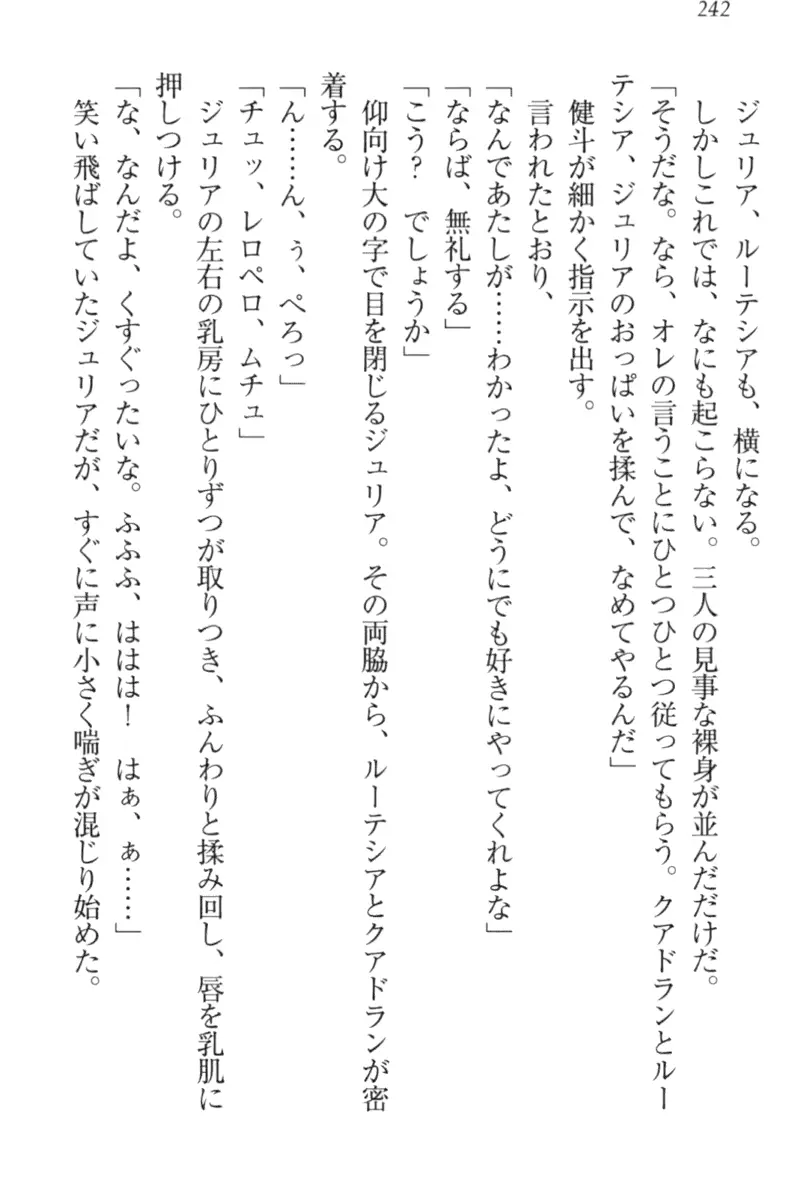 242
ジュリア、ルーテシアも、横になる。
しかしこれでは、なにも起こらない。三人の見事な裸身が並んだだけだ。
「そうだな。なら、オレの言うことにひとつひとつ従ってもらう。クアドランとルー
テシア、ジュリアのおっぱいを揉んで、なめてやるんだ」
健斗が細かく指示を出す。
言われたとおり、
「なんであたしが……わかったよ、どうにでも好きにやってくれよな」
「ならば、無礼する」
「こう？　でしょうか」
仰向け大の字で目を閉じるジュリア。その両脇から、ルーテシアとクアドランが密
着する。
「ん……ん、ぅ、ぺろっ」
「チュッ、レロペロ、ムチュ」
ジュリアの左右の乳房にひとりずつが取りつき、ふんわりと揉み回し、唇を乳肌に
押しつける。
「な、なんだよ、くすぐったいな。ふふふ、ははは！　はぁ、ぁ……」
笑い飛ばしていたジュリアだが、すぐに声に小さく喘ぎが混じり始めた。